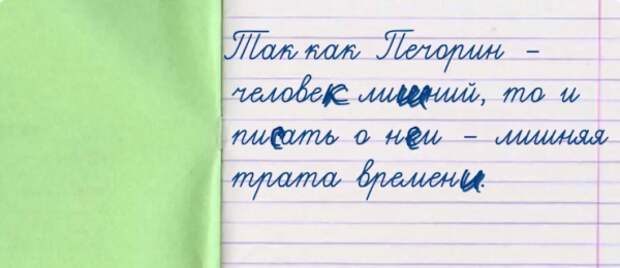 Так как Печорин –
человек лишний, то и
писать о неи – лишняя
трата времени.